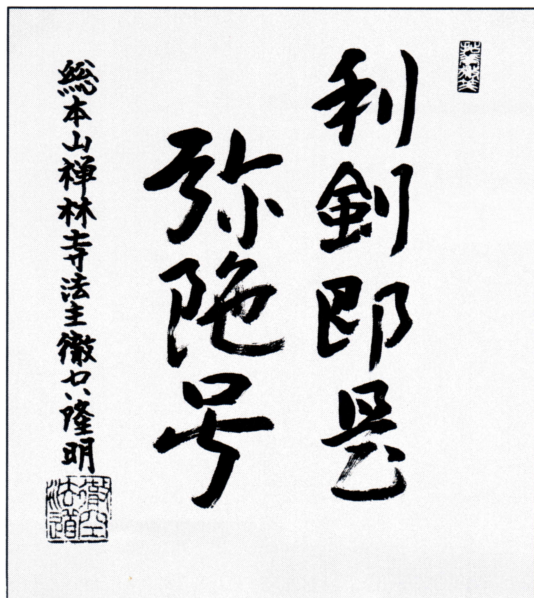 利剣即是
弥陀号
総本山禅林寺法主徹空隆明
徹空
法道